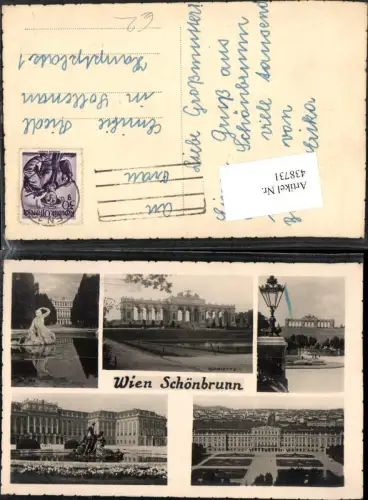 An
Frau
Emilie Riedl
in Sollenau
Hauptplatz 1
Liebe Großmutter!
Gruß aus
Schönbrunn
viele tausend
von
Erika
Republik Österreich
Artikel Nr.
438731
Wien Schönbrunn